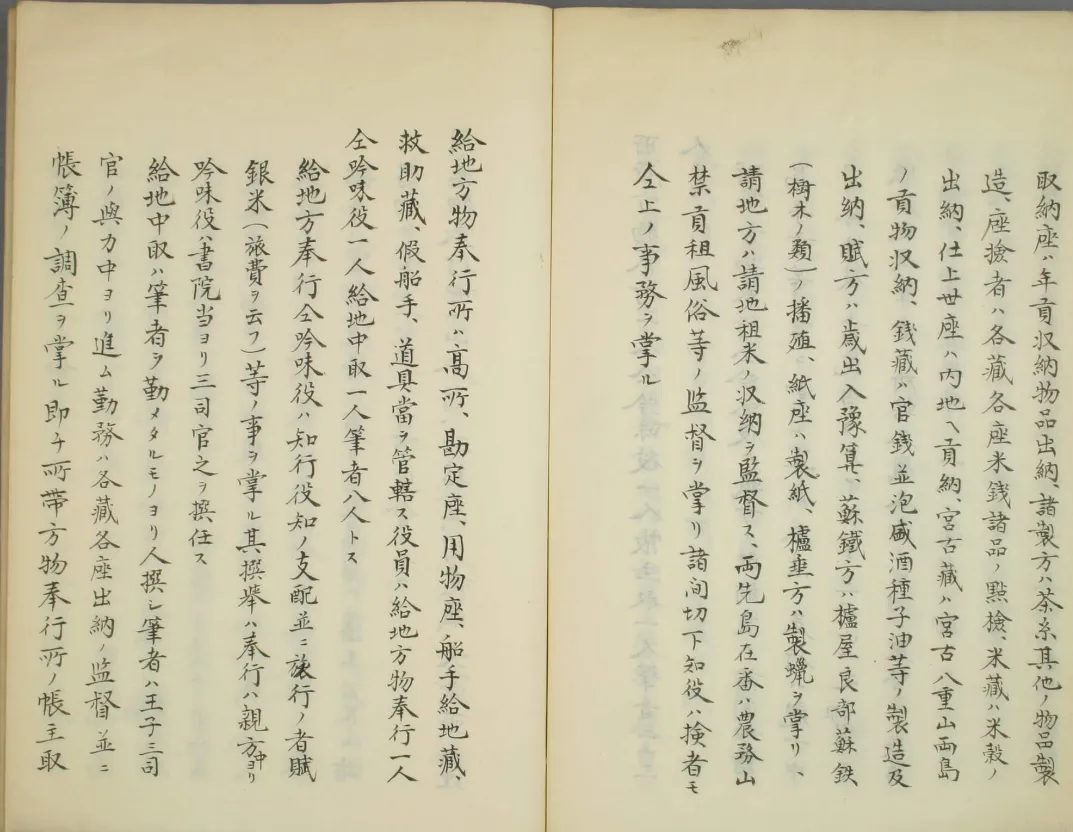 取納座ハ年貢収納物品出納、諸製方ハ茶糸其他ノ物品製
造、座撿者ハ各藏各座米銭諸品ノ點撿、米藏ハ米穀ノ
出納、仕上世座ハ内地ヘ貢納、宮古藏ハ宮古八重山両島
ノ貢物収納、銭藏ハ官銭並泡盛酒種子油等ノ製造及
出納、賦方ハ歳出入豫算、蘇鐵方ハ櫨屋良部蘇鉄
(樹木ノ類)ノ播殖、紙座ハ製紙、櫨垂方ハ製蠟ヲ掌リ、
請地方ハ請地祖米ノ収納ヲ監督ス、両先島在番ハ農務山
禁貢祖風俗等ノ監督ヲ掌リ諸間切下知役ハ撿者モ
仝上ノ事務ヲ掌ル
給地方物奉行所ハ高所、勘定座、用物座、船手給地藏、
救助藏、假船手、道具當ヲ管轄ス役員ハ給地方物奉行一人
仝吟味役一人給地中取一人筆者八人トス
給地方奉行仝吟味役ハ知行役知ノ支配並ニ旅行ノ者賦
銀米(旅費ヲ云フ)等ノ事ヲ掌ル其撰挙ハ奉行ハ親方中ヨリ
吟味役ハ書院当ヨリ三司官之ヲ撰任ス
給地中取ハ筆者ヲ勤メタルモノヨリ人撰シ筆者ハ王子三司
官ノ與力中ヨリ進ム勤務ハ各藏各座出納ノ監督並ニ
帳簿ノ調査ヲ掌ル即チ所帯方物奉行所ノ帳主取